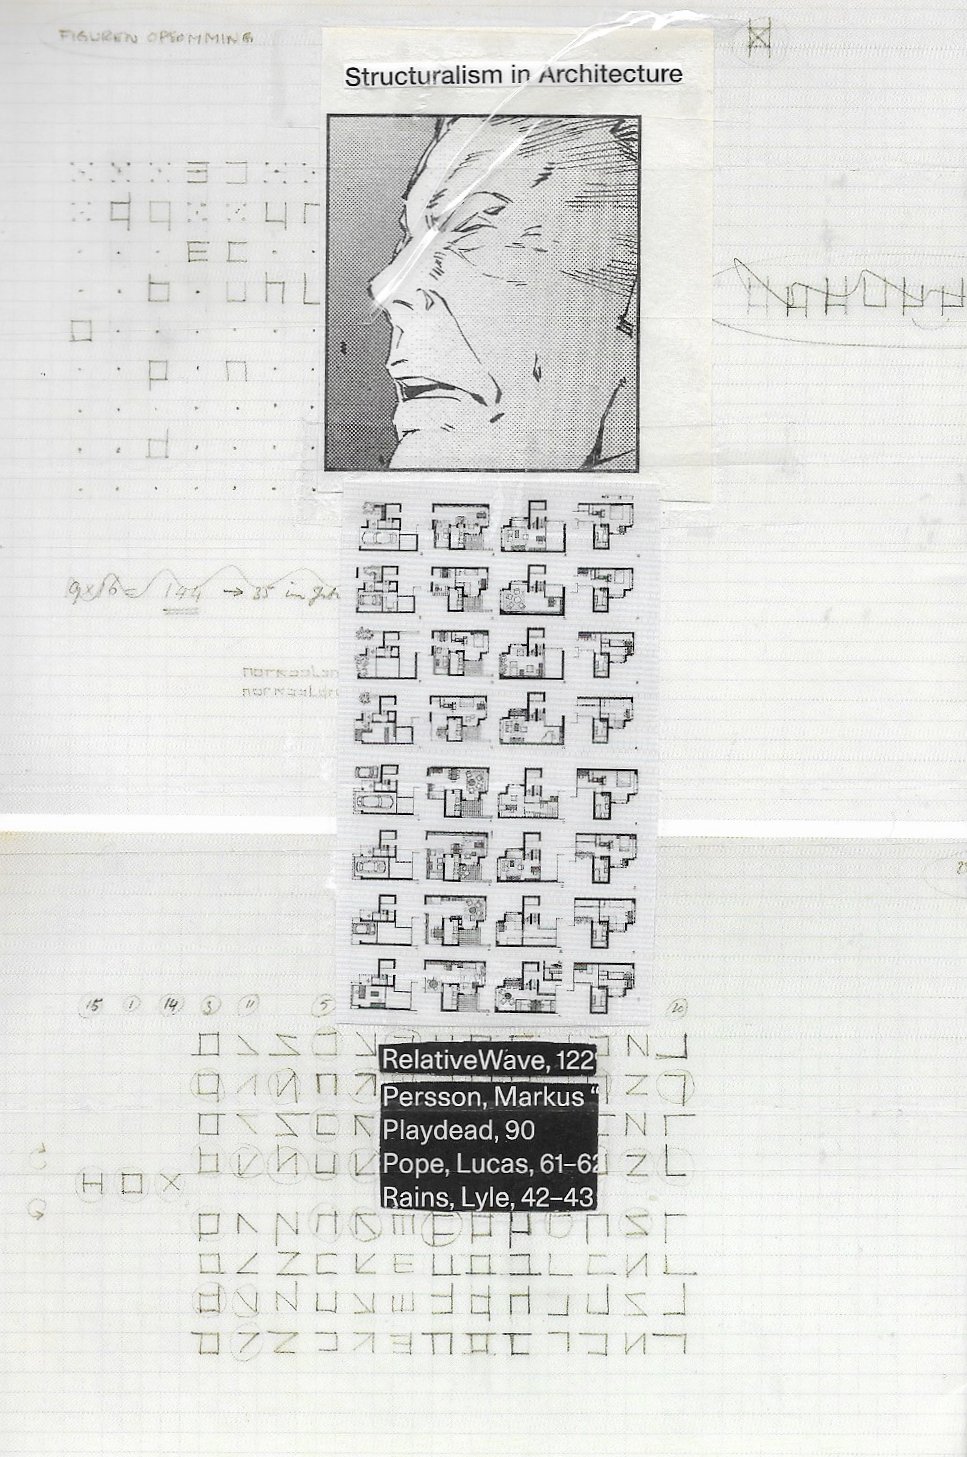 FIGUREN OPSOMMING
Structuralism in Architecture
9x16 = 144 → 35 in
15 1 14 3 11 5 20
RelativeWave, 122
Persson, Markus “
Playdead, 90
Pope, Lucas, 61–62
Rains, Lyle, 42–43